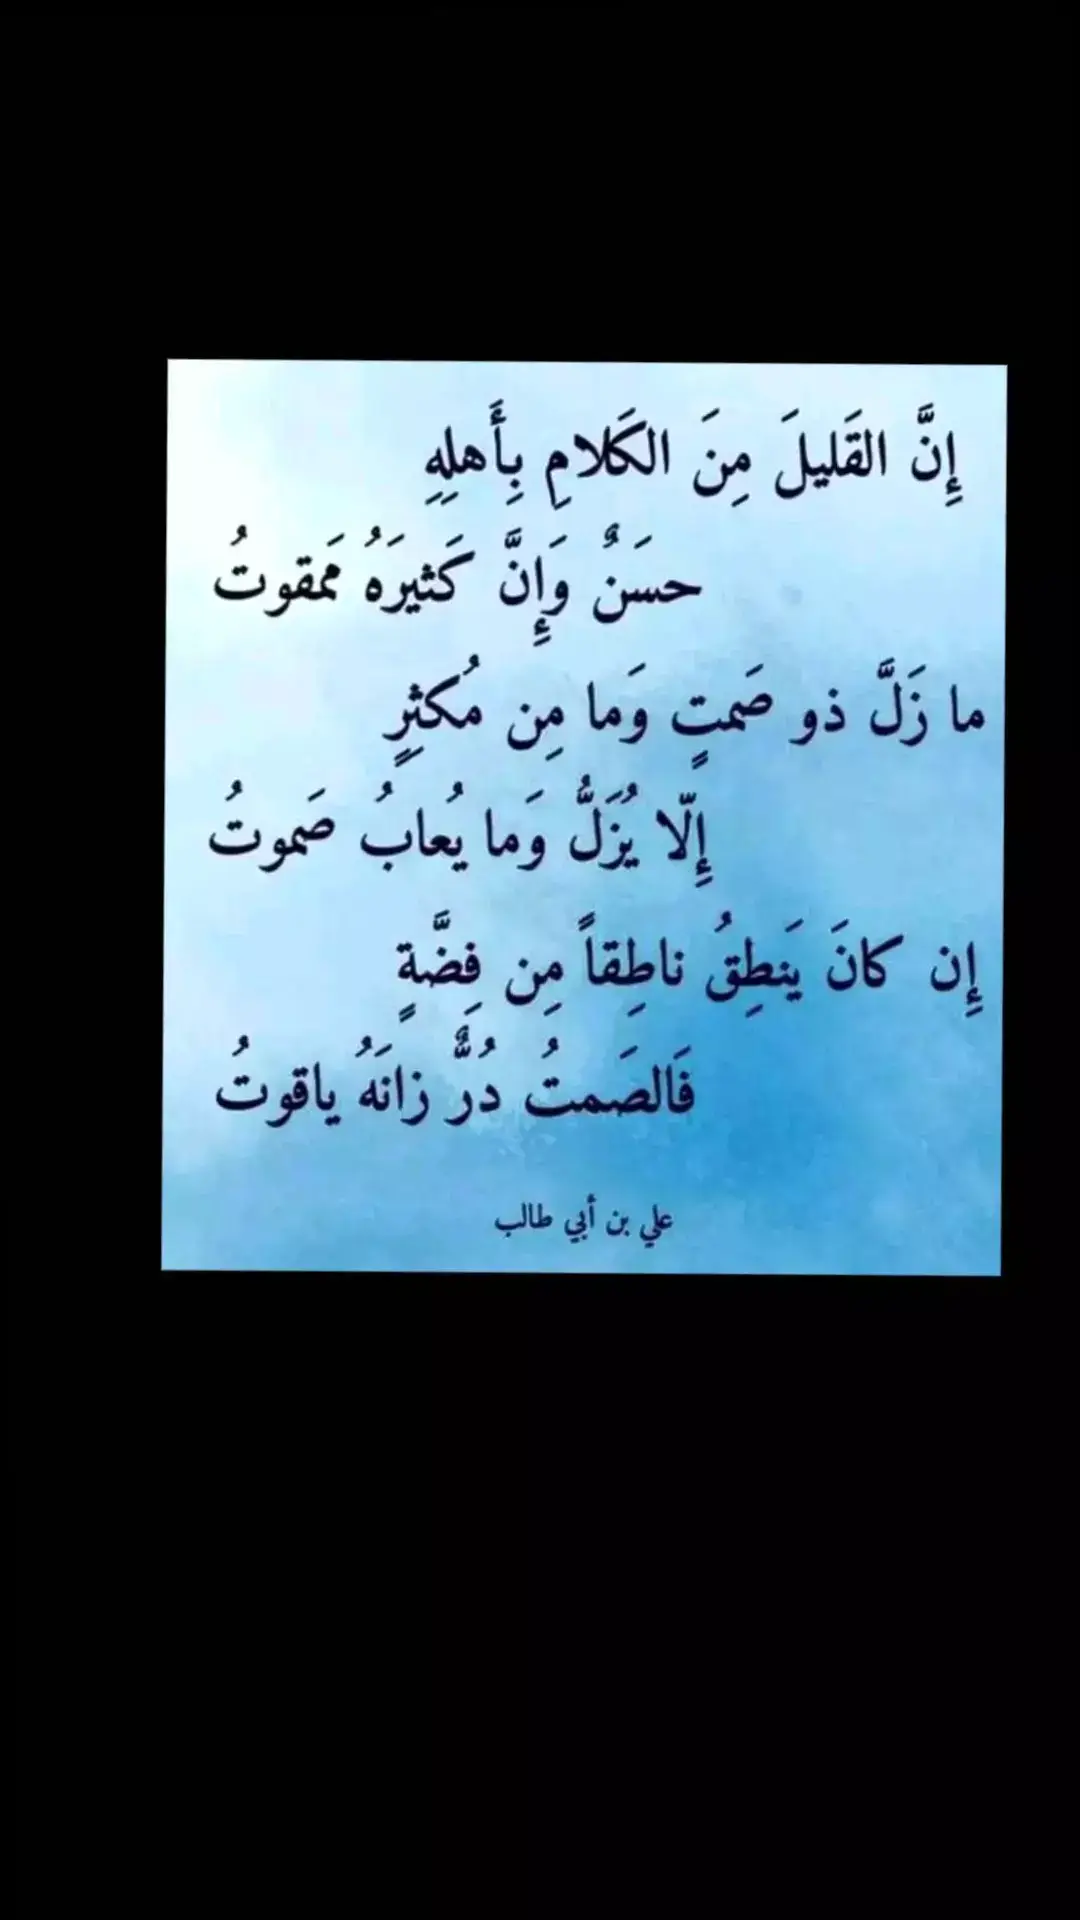 إِنَّ القَليلَ مِنَ الكَلامِ بِأَهلِهِ
حسَنٌ وَإِنَّ كَثيرَهُ مَمقوتُ
ما زَلَّ ذو صَمتٍ وَما مِن مُكثِرٍ
إِلّا يُزَلُّ وَما يُعابُ صَموتُ
إِن كانَ يَنطِقُ ناطِقاً مِن فِضَّةٍ
فَالصَمتُ دُرٌّ زانَهُ ياقوتُ
علي بن أبي طالب